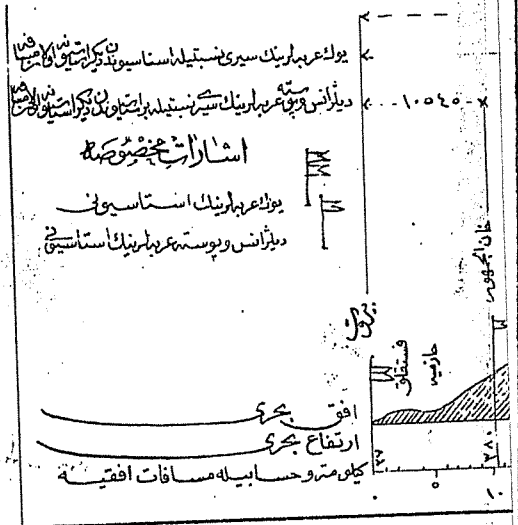 یوك عربه لرینك سیری نسبتیله استاسیوندن دیكر استاسیونه اولان مسافه
دیلژانس وپوسته عربه لرینك سیری نسبتیله بر استاسیوندن دیكر استاسیونه اولان مسافه
١٠٥٤٥
اشارات مخصوصه
یوك عربه لرینك استاسیونی
دیلژانس وپوسته عربه لرینك استاسیونی
خان الجمهور
بیروت
فستقلق
حازمیه
افق بحری
ارتفاع بحری
٢٧
٢٨٠
كیلومترو حسابیله مسافات افقیه
٠ ٥ ١٠